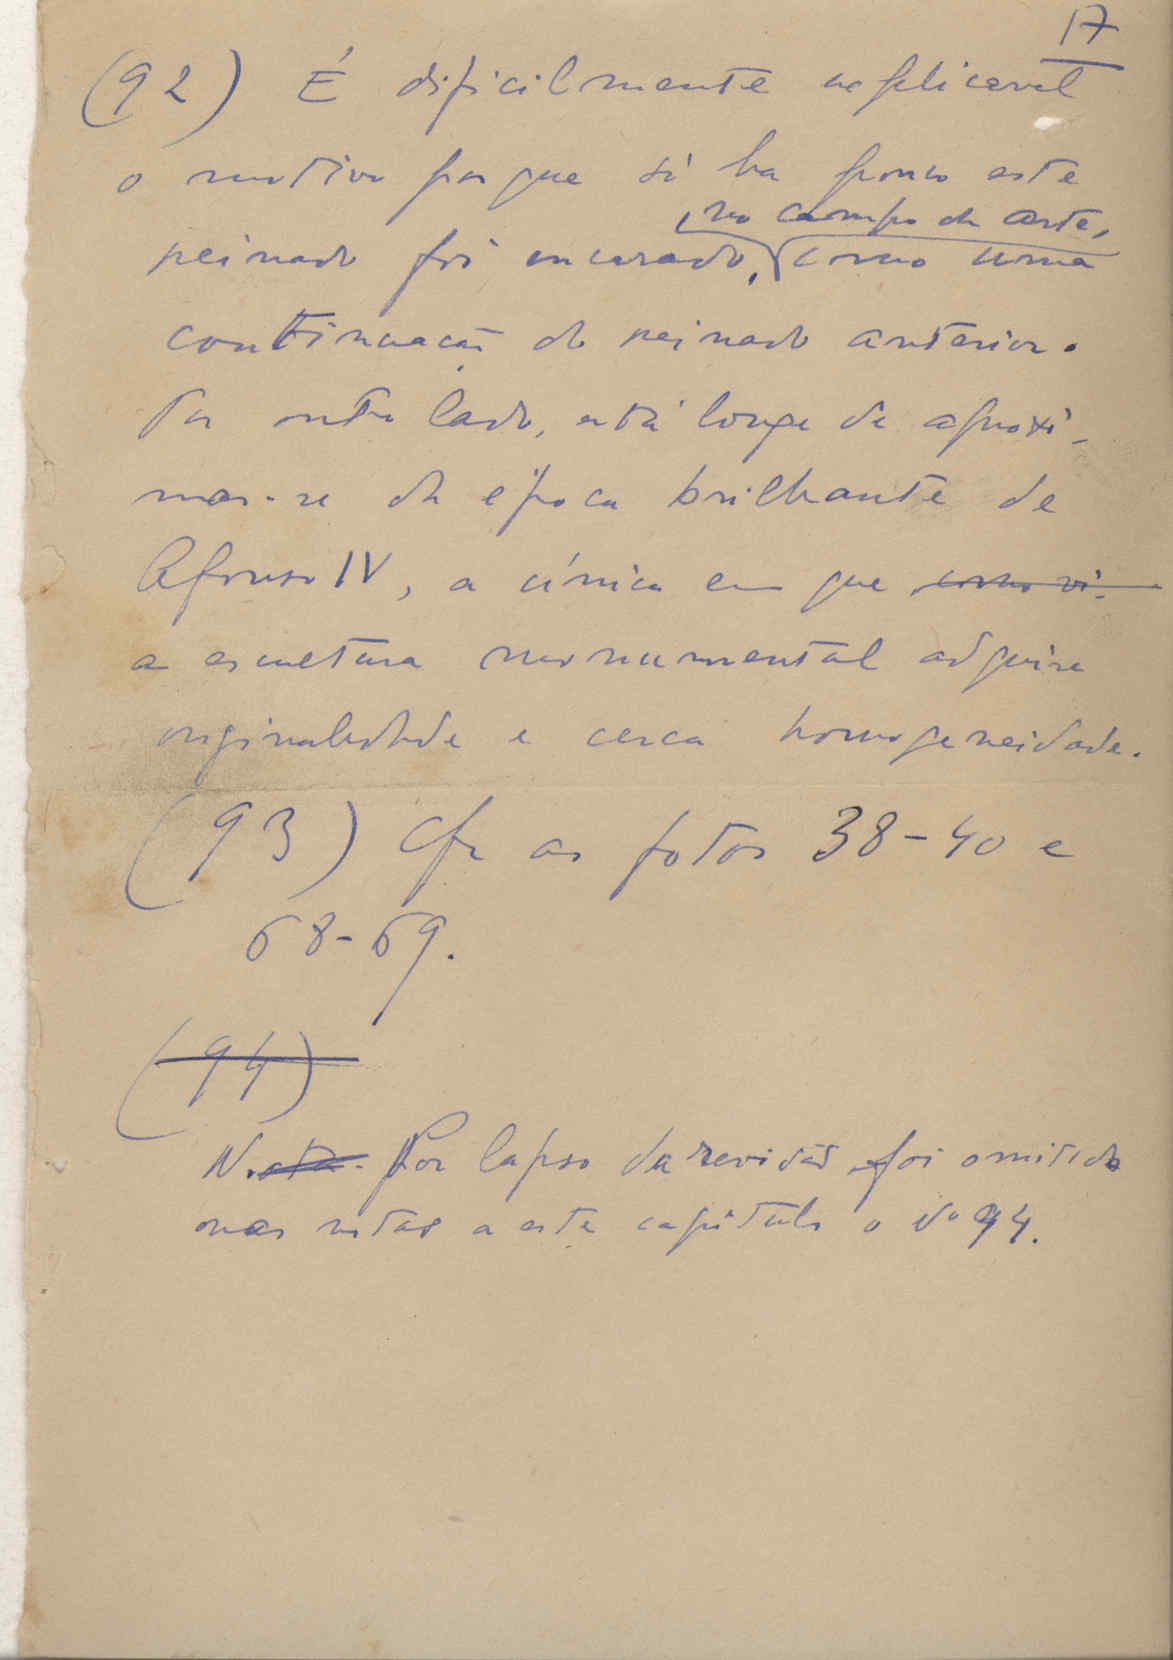 17
(92) É dificilmente explicavel
o motivo porque só ha pouco este
no campo da arte,
reinado foi encarado, como uma
continuação do reinado anterior.
Por outro lado, está longe de aproxi-
mar-se da época brilhante de
Afonso IV, a única em que como vi-
a escultura monumental adquire
originalidade e cerca homogeneidade.
(93) Cfr as fotos 38-40 e
68-69.
(94)
Nota. Por lapso da revisão foi omitido
nas notas a este capitulo o nº 94.